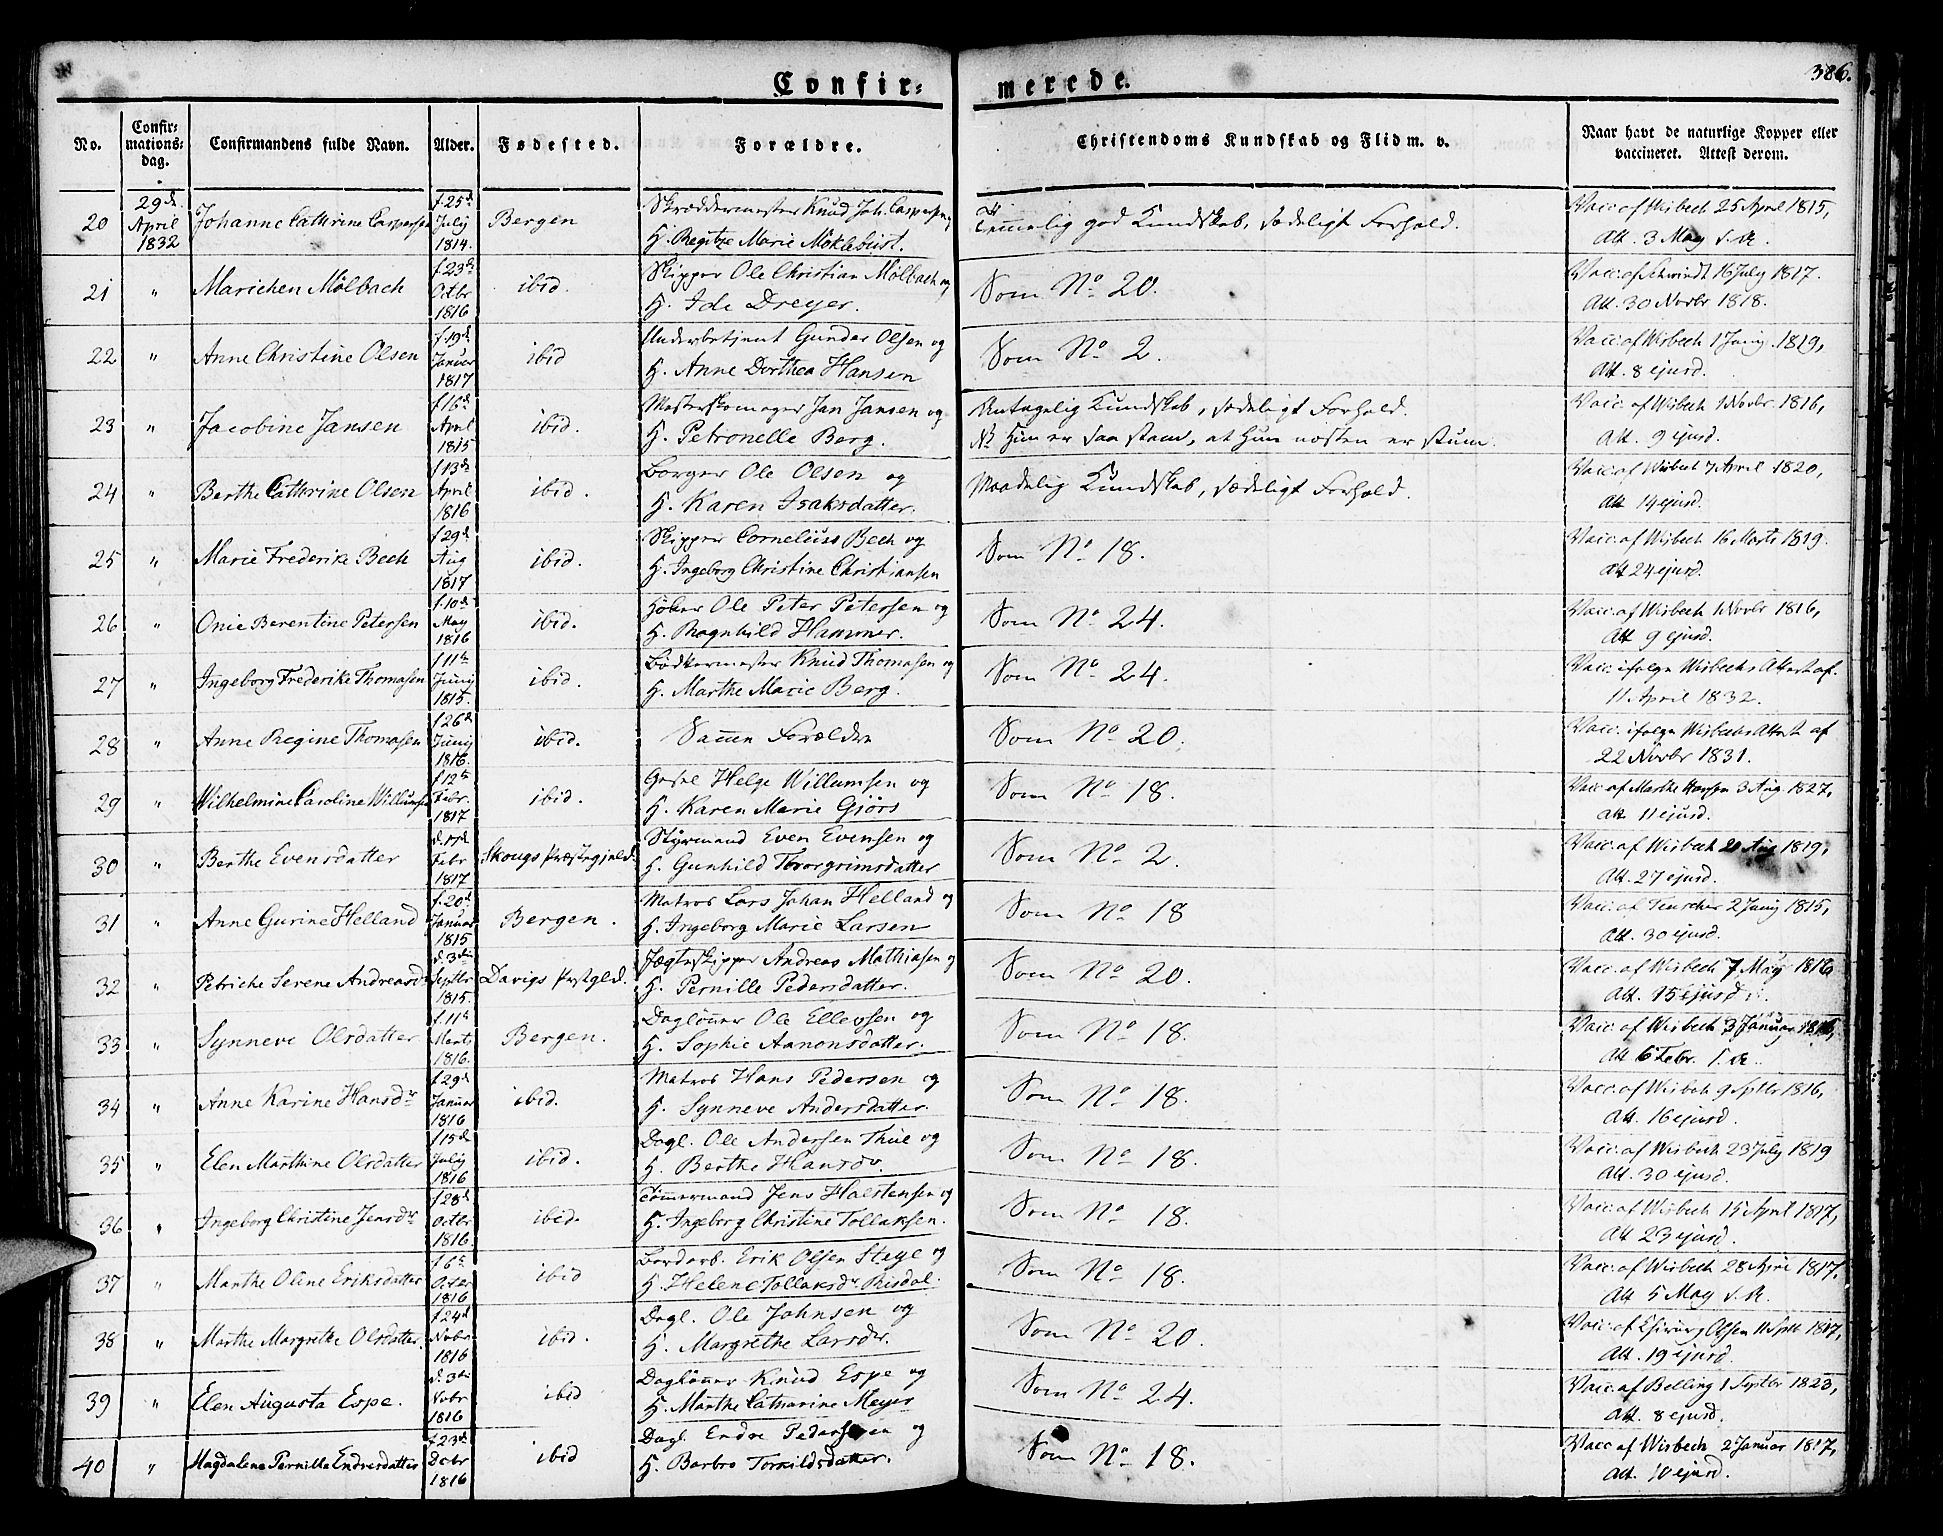 Confir: merede. 386.
No. Confir: mations: dag. Confirmandens fulde Navn. Alder. Fødested. Forældre. Christendoms Kundskab og Flid m. v. Naar havt de naturlige Kopper eller vaccineret. Attest derom.
20 29de April 1832 Johanne Cathrine Caspersen f. 25de July 1814. Bergen Skræddermester Knud Joh. Caspersen og H. Regitze Marie Möklebust. Temmelig god Kundskab, sædeligt Forhold. Vacc. af Wisbech 25 April 1815, Att. 3 May s. A.
21 " Marichen Mölbach f. 23de Octbr 1816 ibid. Skipper Ole Christian Mölbach og H. Ide Dreyer. Som No 20. Vacc. af Schwindt 16 July 1817. Att. 30 Novbr 1818.
22 " Anne Christine Olsen f. 19de Januar 1817 ibid Underbetjent Gunder Olsen og H. Anne Dorthea Hansen Som No 2. Vacc. af Wisbech 1 Juny 1819, Att. 8 ejusd.
23 " Jacobine Jansen f. 16de April 1815 ibid. Mesterskomager Jan Jansen og H. Petronelle Berg. Antagelig Kundskab, sædeligt Forhold. NB Hun er saa stam, at hun næsten er stum. Vacc. af Wisbech 1 Novbr. 1816, Att. 9 ejusd.
24 " Berthe Cathrine Olsen f. 13de April 1816 ibid. Borger Ole Olsen og H. Karen Isaksdatter. Maadelig Kundskab, sædeligt Forhold. Vacc. af Wisbech 7 April 1820, Att 14 ejusd.
25 " Marie Frederike Bech f. 29de Aug 1817 ibid. Skipper Cornelius Bech og H. Ingeborg Christine Christiansen Som No 18. Vacc. af Wisbech 16 Marts 1819. Att 24 ejusd.
26 " Onie Berentine Petersen f. 10de May 1816 ibid. Höker Ole Peter Petersen og H. Ragnhild Hammer. Som No 24. Vacc. af Wisbech 1 Novbr 1816, Att 9 ejusd.
27 " Ingeborg Frederike Thomasen f. 11te Juny 1815. ibid. Bödkermester Knud Thomasen og H. Marthe Marie Berg. Som No 24. Vacc. ifölge Wisbechs Attest af 11 April 1832.
28 " Anne Regine Thomasen f. 26de Juny 1816. ibid. Samme Forældre Som No 20. Vacc. ifölge Wisbechs Attest af 22 Novbr 1831.
29 " Wilhelmine Caroline Willumsen f. 12te Febr. 1817 ibid. Helge Willumsen og H. Karen Marie Gjörs Som No 18. Vacc af Marthe Hansen 3 Aug. 1827, Att 11 ejusd.
30 " Berthe Evensdatter Febr 1817 Skougs Præstegjeld. Styrmand Even Evensen og H. Gunhild Thorgrimsdatter Som No 2. Vacc. af Wisbech 20 Aug 1819, Att. 27 ejusd.
31 " Anne Gurine Helland f. 20de Januar 1815 Bergen. Matros Lars Johan Helland og H. Ingeborg Marie Larsen Som No 18 Vacc. af Teuscher 2 Juny 1815, Att. 30 ejusd.
32 " Petriche Serene Andreasd. f. 3die Septbr 1815. Davigs Præstgjeld. Jægteskipper Andreas Mathiasen og H. Pernille Pedersdatter. Som No 20. Vacc. af Wisbech 7 May 1816 Att. 15 ejusd.
33 " Synneve Olsdatter f. 11te Marts 1816. Bergen. Daglönner Ole Ellevsen og H. Sophie Aanonsdatter. Som No 18. Vacc af Wisbech 3 Januar Att 6 Febr. s. A.
34 " Anne Karine Hansdr f. 29de Januar 1816 ibid. Matros Hans Pedersen og H. Synneve Andersdatter. Som No 18. Vacc. af Wisbech 9 Septbr 1816, Att. 16 ejusd.
35 " Elen Marthine Olsdatter f 15de July 1816 ibid. Dagl. Ole Andersen Thue og H. Berthe Hansdr. Som No 18. Vacc. af Wisbech 23 July 1819 Att. 30 ejusd.
36 " Ingeborg Christine Jensdr f 28de Octbr 1816. ibid. Tömmermand Jens Halstensen og H. Ingeborg Christine Tollaksen. Som No 18. Vacc. af Wisbech 15 April 1817, Att 23 ejusd.
37 " Marthe Oline Eriksdatter f 6te Octbr 1816 ibid Bordarb. Erik Olsen Steye og H. Helene Tollaksdr Risdal. Som No 18. Vacc. af Wisbech 28 April 1817, Att 5 May s. A.
38 " Marthe Margrethe Olsdatter. f. 24de Novbr 1816 ibid. Dagl. Ole Johnsen og H. Margrethe Larsdr. Som No 20. Vacc. af Chirurg Olsen 11 Septb 1817, Att. 19 ejusd.
39 " Elen Augusta Espe. f. 3die Novbr 1816 ibid Daglönner Knud Espe og H. Marthe Catharine Meyer Som No 24. Vacc. af Belling 1 Septbr 1823, Att. 8 ejusd.
40 " Magdalene Pernille Endresdatter f. 23de Decbr 1816 ibid Dagl. Endre Pedersen og H. Barbro Torkildsdatter. Som No 18. Vacc af Wisbech 2 Januar 1817, Att. 10 ejusd.